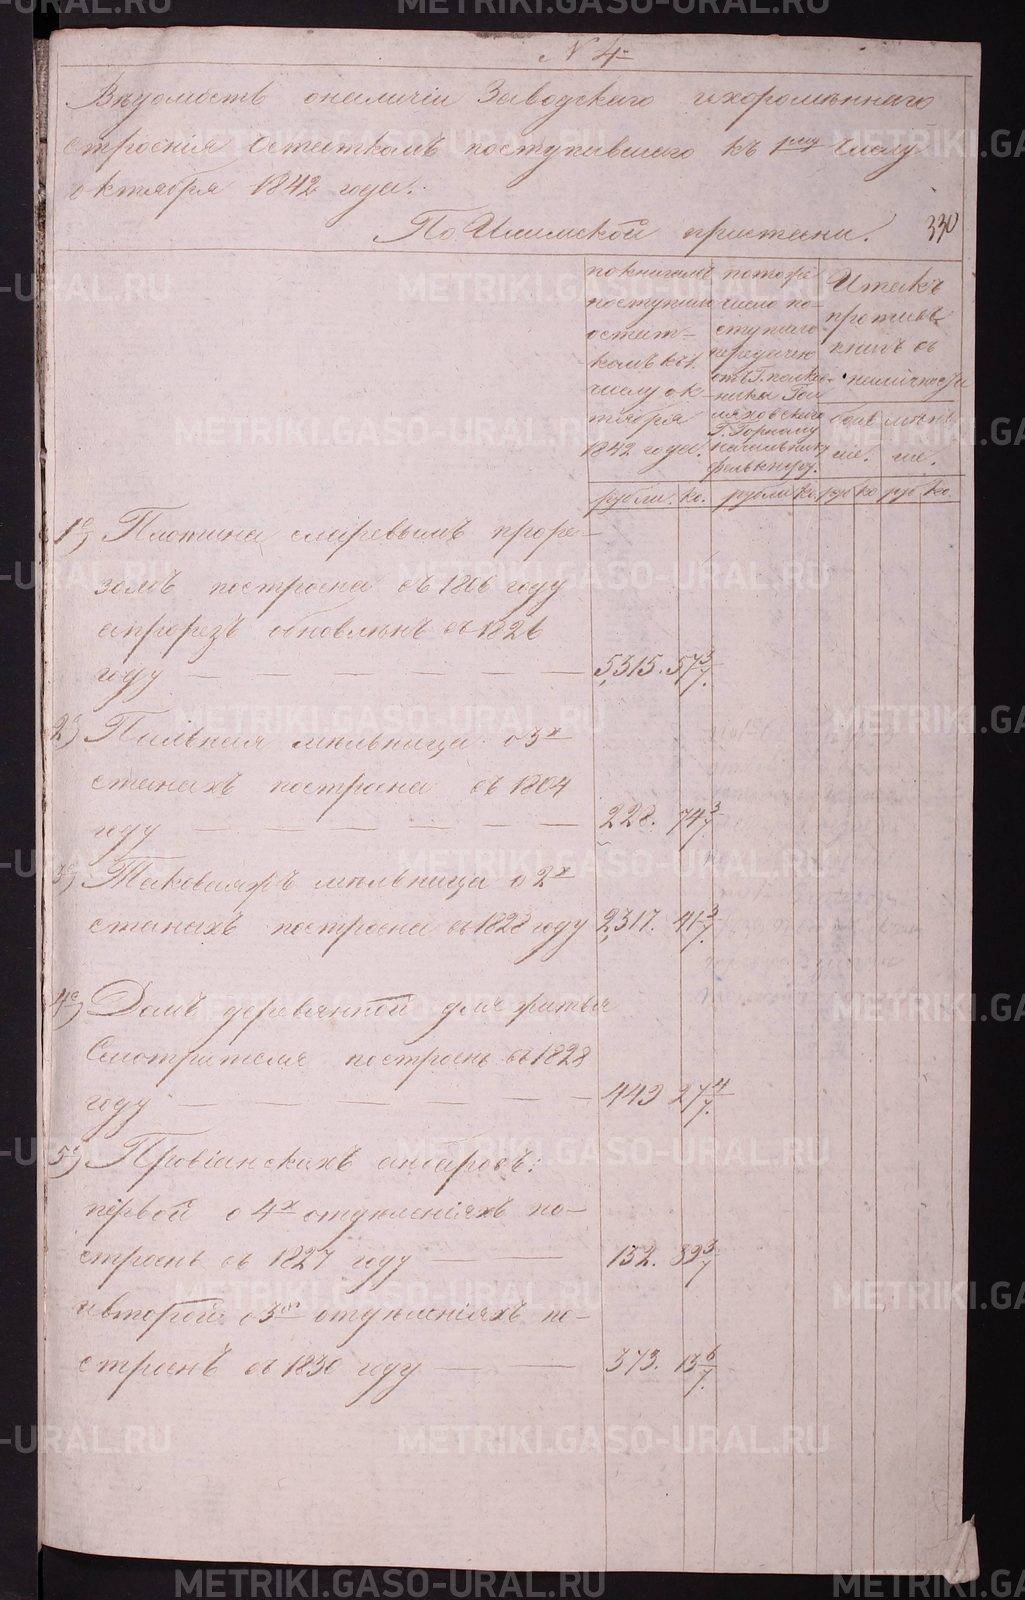 N 4
Вѣдомость о наличіи Заводскаго и хоромѣннаго
строенія остаткомъ поступившаго къ 1му числу
октября 1842 года.
По Илимской пристани. 330
по книгамъ
поступило
остат-
комъ къ 1
числу ок
тября
1842 года.
число по-
ступило
передачею
отъ Г. полко-
вника
Г. Горному
начальнику
Фелькнеру.
И такъ
противъ
книгъ въ
наличности
бол мѣнь
ше. ше.
рубли. ко. рубли ко. руб ко руб ко.
1е) Плотина с ларевымъ проре-
зомъ построена въ 1806 году
а прорезъ обновлѣнъ въ 1826
году — — — — — — 5,315. 57 3/7.
2е) Пильная мѣльница о 3х
станахъ построена въ 1804
году — — — — — — 228. 74 3/7
3е) Таковаяжъ мѣльница о 2х
станахъ построена въ 1828 году 2,317. 41 3/7.
4е) Домъ деревянной для житья
Смотрителя построенъ въ 1828
году — — — — — — 449 27 4/7.
5е) Провіанскихъ анбаровъ:
первой о 4х отдѣленіяхъ по-
строенъ въ 1827 году — — 152. 89 3/7
и второй о 3хъ отдѣленіяхъ по-
строенъ въ 1830 году — — 373. 13 6/7.
METRIKI.GASO-URAL.RU